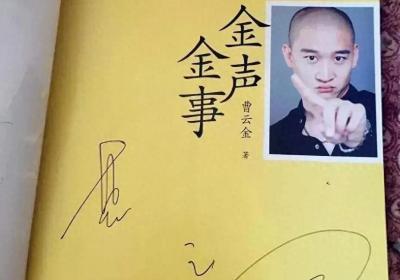 金声
金事
曹云金 著